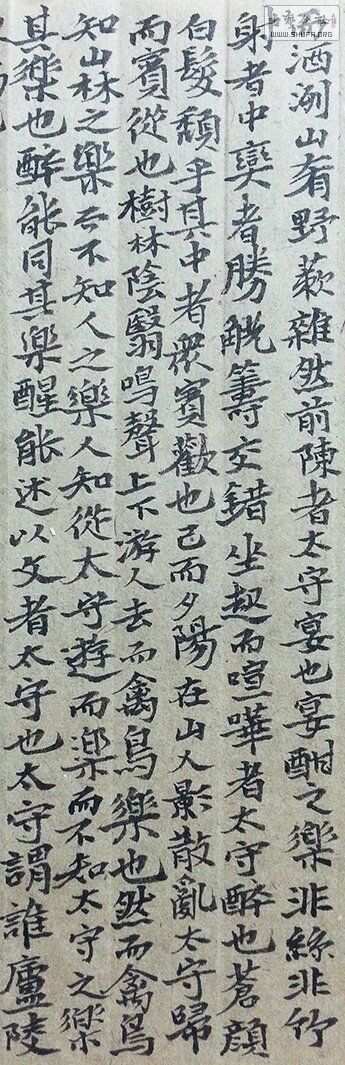 洒洌山肴野蔌雜然前陳者太守宴也宴酣之樂非絲非竹
射者中奕者勝觥籌交錯坐起而喧嘩者太守醉也蒼顔
白髮頹乎其中者衆賓歡也已而夕陽在山人影散亂太守歸
而賓從也樹林陰翳鳴聲上下游人去而禽鳥樂也然而禽鳥
知山林之樂而不知人之樂人知從太守遊而樂而不知太守之樂
其樂也醉能同其樂醒能述以文者太守也太守謂誰廬陵